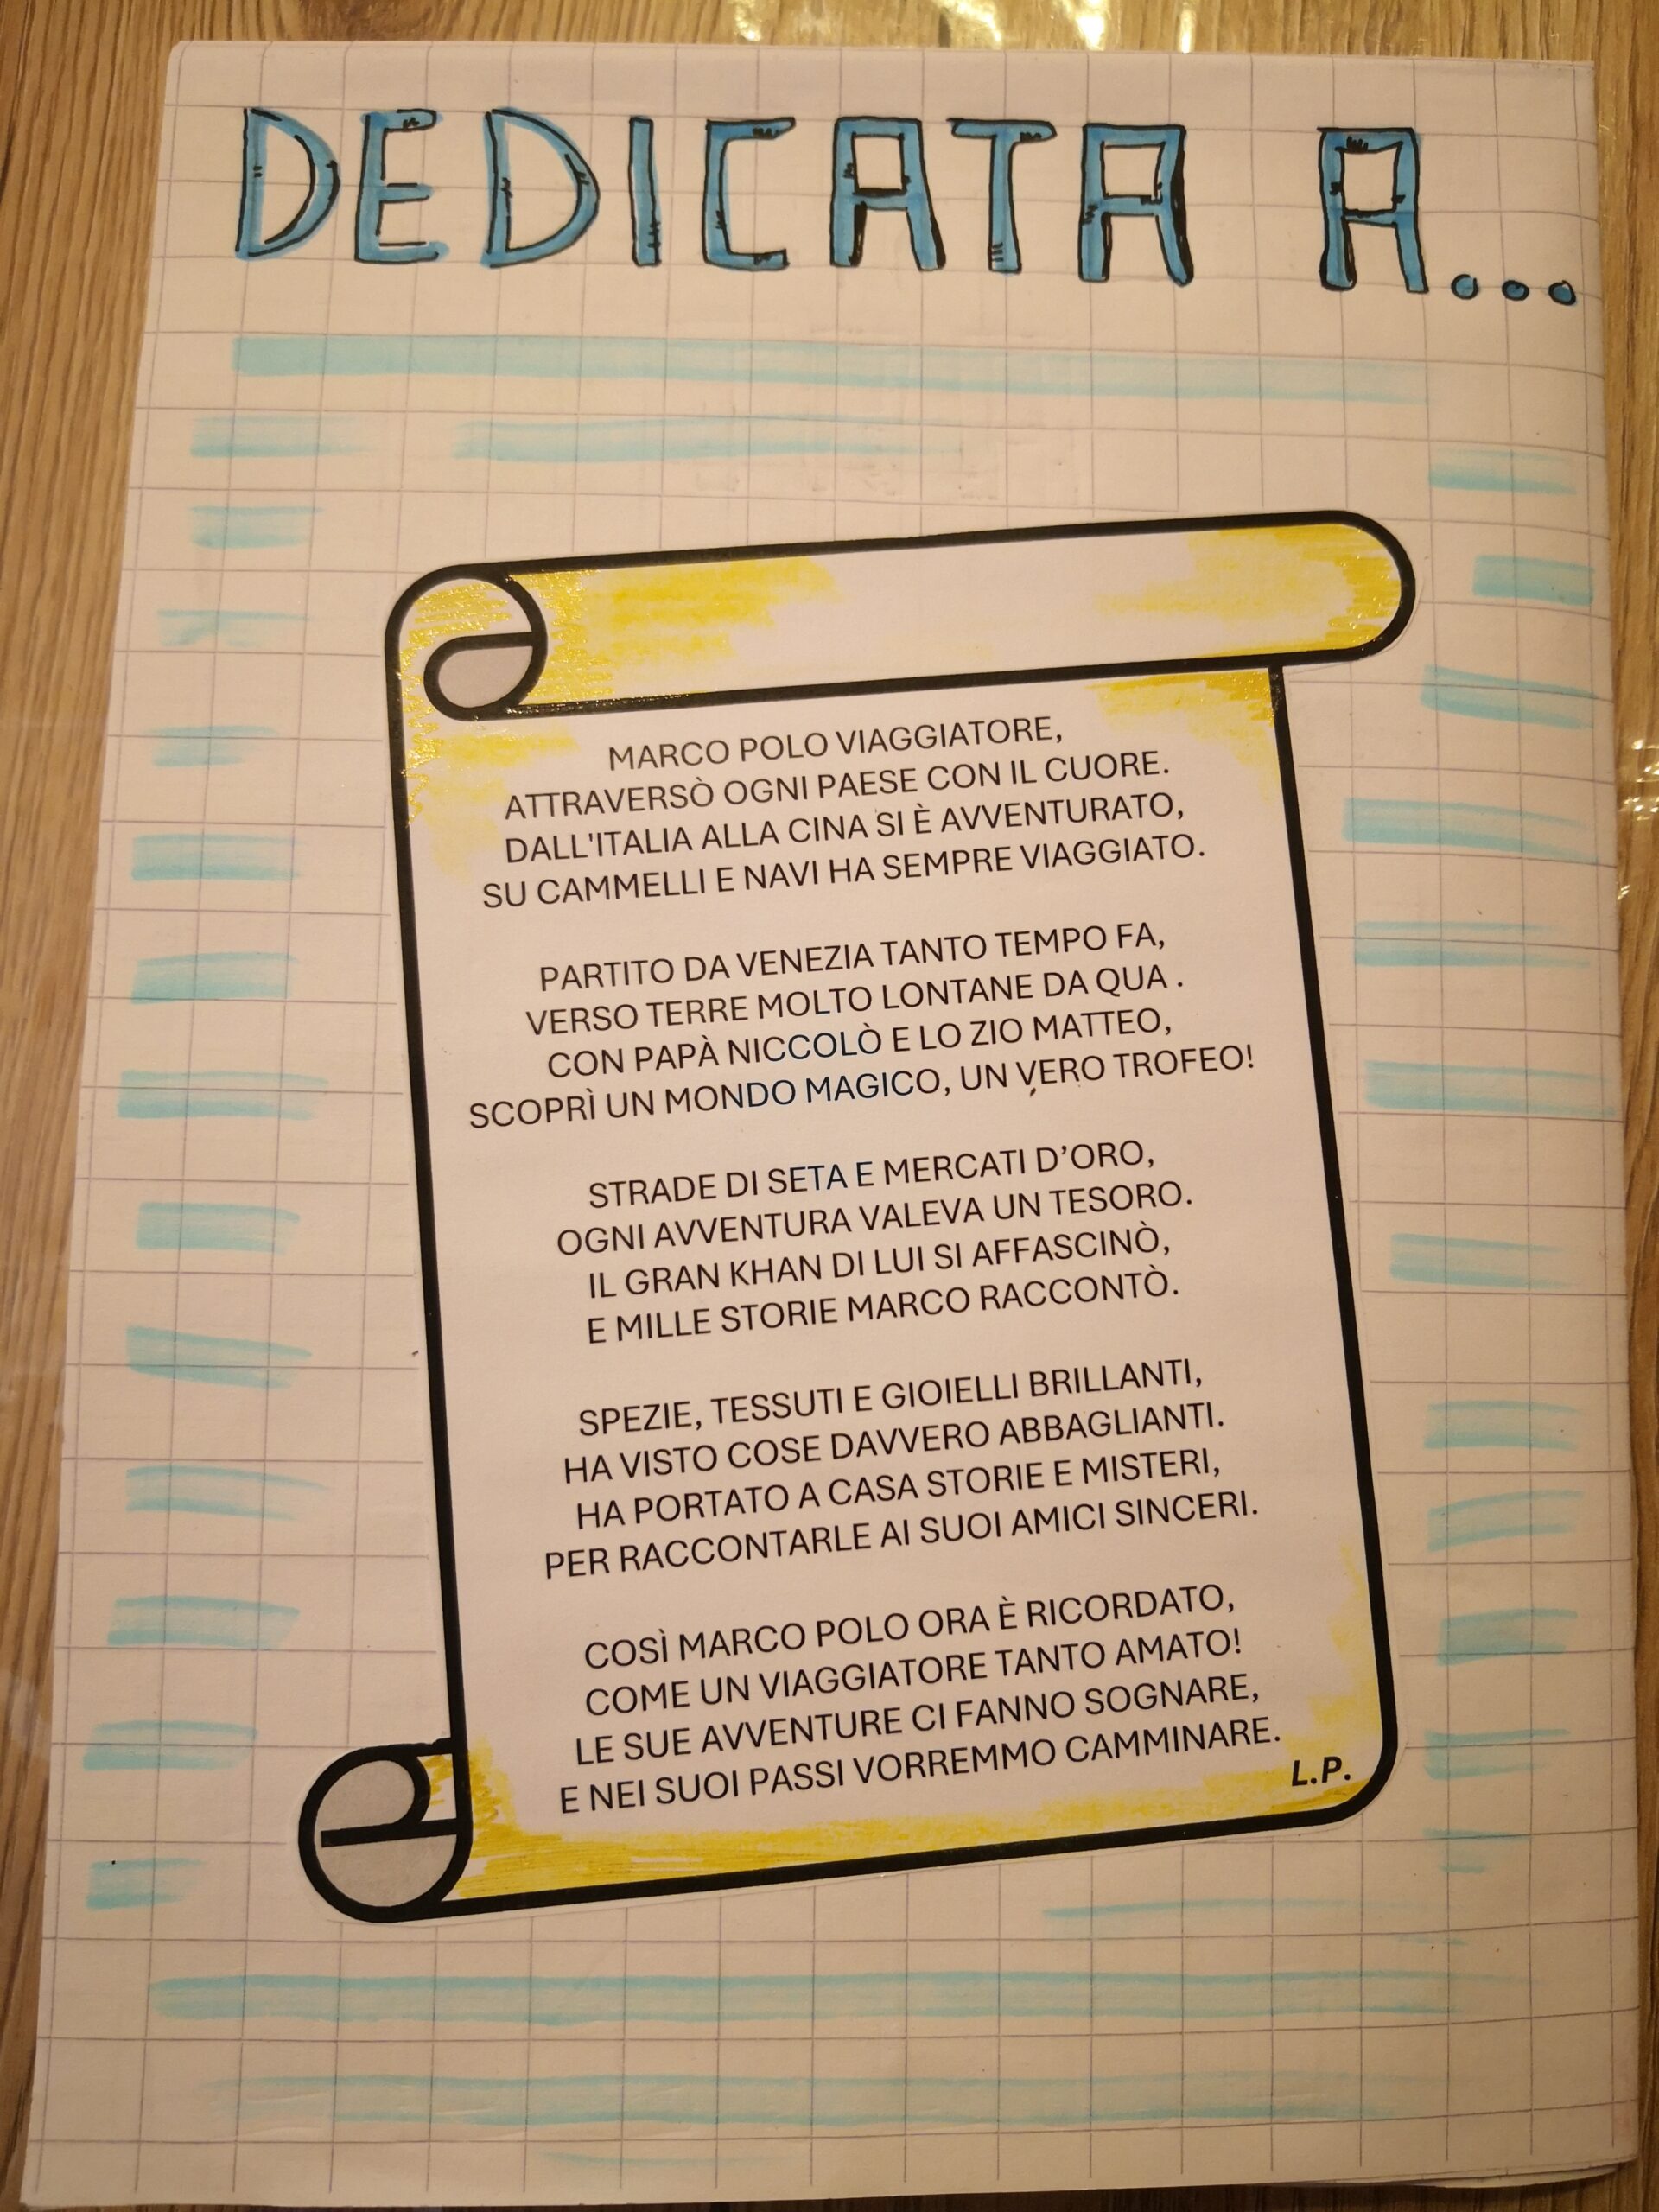 DEDICATA A...
MARCO POLO VIAGGIATORE,
ATTRAVERSÒ OGNI PAESE CON IL CUORE.
DALL'ITALIA ALLA CINA SI È AVVENTURATO,
SU CAMMELLI E NAVI HA SEMPRE VIAGGIATO.
PARTITO DA VENEZIA TANTO TEMPO FA,
VERSO TERRE MOLTO LONTANE DA QUA .
CON PAPÀ NICCOLÒ E LO ZIO MATTEO,
SCOPRÌ UN MONDO MAGICO, UN VERO TROFEO!
STRADE DI SETA E MERCATI D’ORO,
OGNI AVVENTURA VALEVA UN TESORO.
IL GRAN KHAN DI LUI SI AFFASCINÒ,
E MILLE STORIE MARCO RACCONTÒ.
SPEZIE, TESSUTI E GIOIELLI BRILLANTI,
HA VISTO COSE DAVVERO ABBAGLIANTI.
HA PORTATO A CASA STORIE E MISTERI,
PER RACCONTARLE AI SUOI AMICI SINCERI.
COSÌ MARCO POLO ORA È RICORDATO,
COME UN VIAGGIATORE TANTO AMATO!
LE SUE AVVENTURE CI FANNO SOGNARE,
E NEI SUOI PASSI VORREMMO CAMMINARE.
L.P.